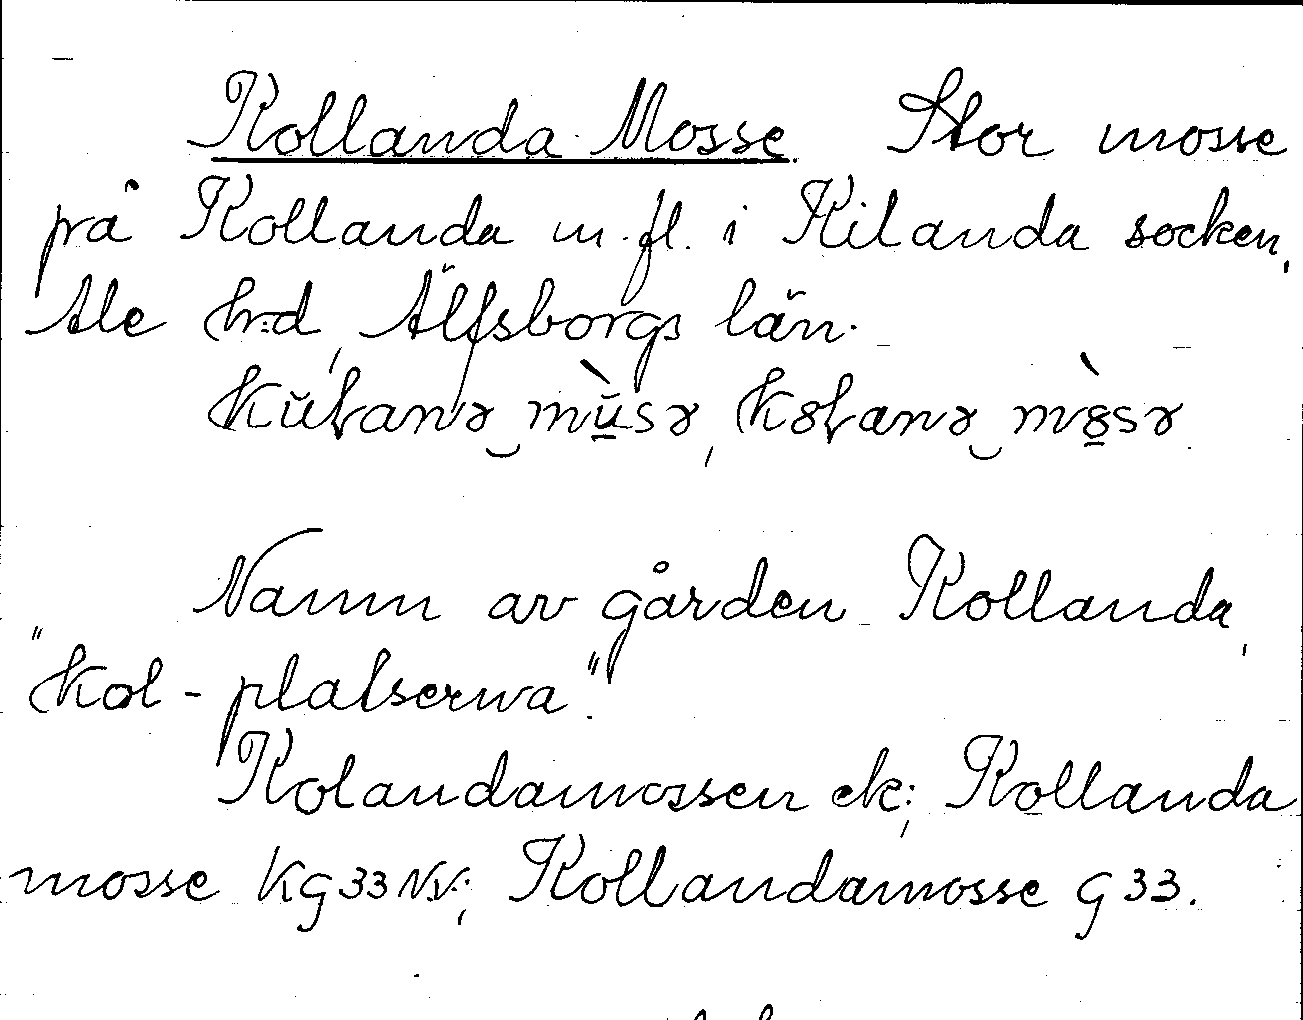 Kollanda Mosse. Stor mosse
på Kollanda m.fl. i Kilanda socken,
Ale h:d, Älfsborgs län.
Namn av gården Kollanda,
"Kol-platserna".
Kolandamossen ek; Kollanda
mosse Kg 33 NV; Kollandamosse G 33.